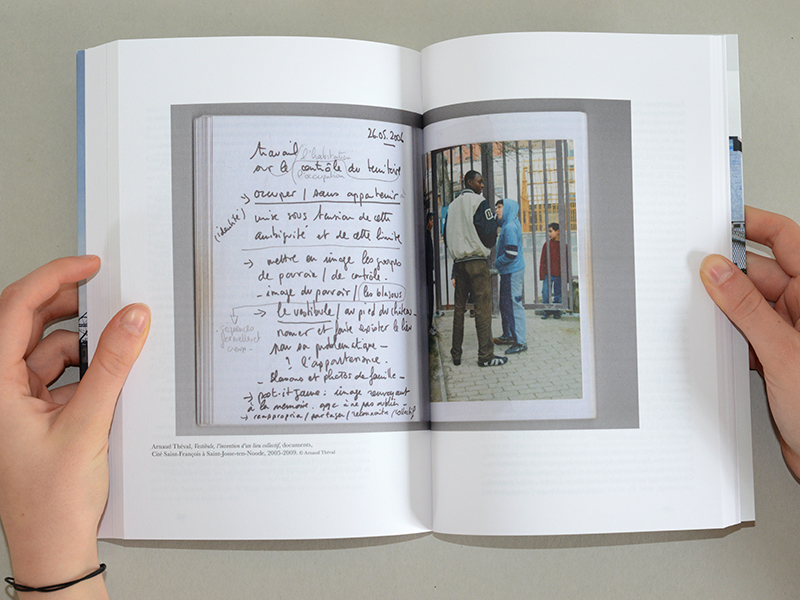 26.05.2006
travail l'habitation
sur le contrôle du territoire
occupation
→ occuper / sans appartenir
(identité)
mise sous tension de cette
ambiguïté et de cette limite
→ mettre en image les groupes
de pouvoir / de contrôle.
- image du pouvoir / les blasons
→ le vestibule / au pied du château
nommer et faire exister le lieu
par sa problématique -
? l'appartenance.
- Blasons et photos de famille -
→ post-it jaune : image renvoyant
à la mémoire. à ne pas oublier -
Arnaud Théval, Vestibule, l'invention d'un lieu collectif, documents,
Cité Saint-François à Saint-Josse-ten-Noode, 2005-2009. © Arnaud Théval